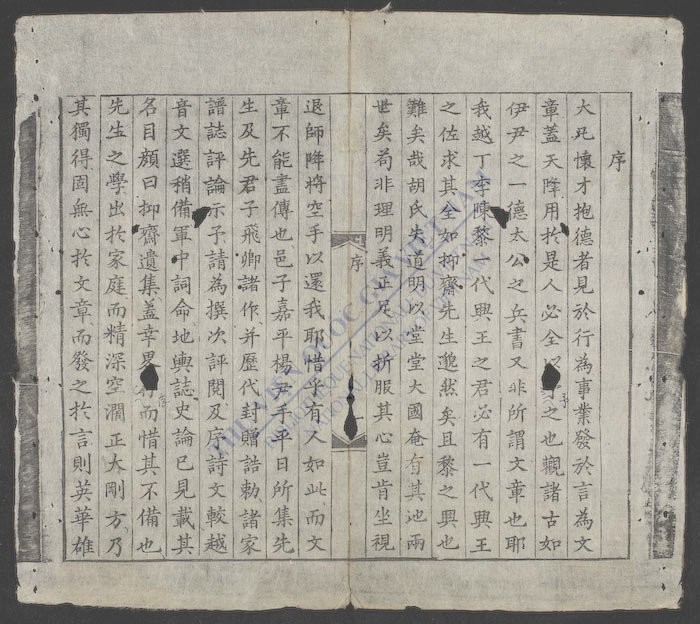 序
大凡懷才抱德者見於行為事業發於言為文
章蓋天降用於是人必全以予之也觀諸古如
伊尹之一德太公之兵書又非所謂文章也耶
我越丁李陳黎一代興王之君必有一代興王
之佐求其全如抑齋先生邈然矣且黎之興也
難矣哉胡氏失道明以堂堂大國奄有其地兩
世矣苟非理明義正足以折服其心豈肯坐視
序
退師降將空手以還我耶惜乎有人如此而文
章不能盡傳也邑子嘉平楊尹手平日所集先
生及先君子飛卿諸作并歷代封贈誥勅諸家
譜誌評論示予請為撰次評閱及序詩文較越
音文選稍備軍中詞命地輿誌史論已見載其
名目顏曰抑齋遺集蓋幸畧而惜其不備也
先生之學出於家庭而精深空濶正大剛方乃
其獨得固無心於文章而發之於言則英華雄
THƯ VIỆN QUỐC GIA VIỆT NAM